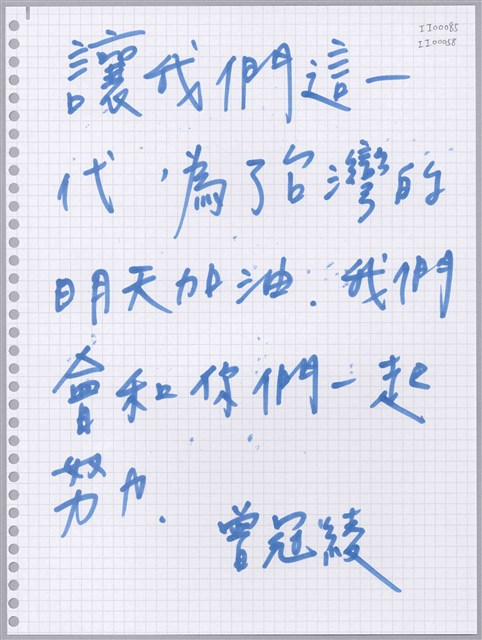 II00085
II00058
讓我們這一
代，為了台灣的
明天加油．我們
會和你們一起
努力．
曾冠綾